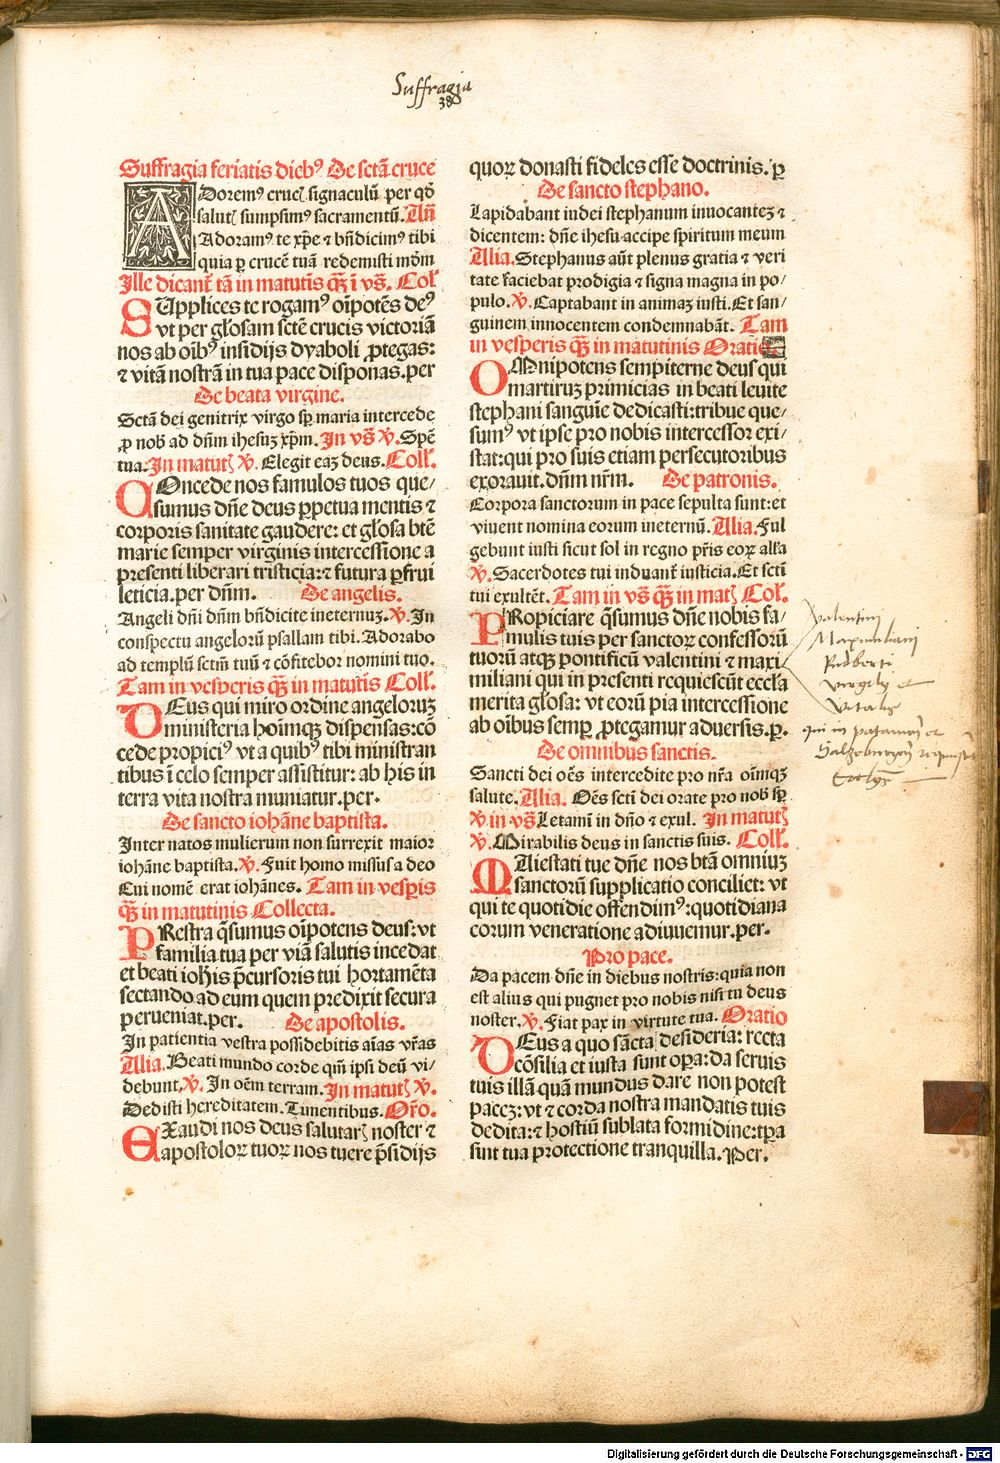 Suffragia
380
Suffragia feriatis diebꝰ De sctā cruce
ADoremꝰ crucꝭ signaculū per qđ
salutꝭ sumpsimꝰ sacramentū. Añ
Adoramꝰ te xp̄e ⁊ bn̄dicimꝰ tibi
quia ꝑ crucē tuā redemisti
Ille dicantꝭ tā in matutīs qꝫ ī vꝭ. Colꝭ
SUpplices te rogamꝰ oīpotēs deꝰ
vt per gl̄osam sctē crucis victoriā
nos ab oībꝰ insidijs dyaboli ꝓtegas:
⁊ vitā nostrā in tua pace disponas. per
De beata virgine.
Sctā dei genitrix virgo sꝑ maria intercede
ꝓ nob̄ ad dn̄m ihesuꝫ xp̄m. In vꝭ ℣. Spē
tua. In matutꝭ ℣. Elegit eaꝫ deus. Collꝭ.
COncede nos famulos tuos que/
sumus dn̄e deus ꝑpetua mentis ⁊
corporis sanitate gaudere: et gl̄osa btē
marie semper virginis intercessione a
presenti liberari tristicia: ⁊ futura ꝑfrui
leticia. per dn̄m. De angelis.
Angeli dn̄i dn̄m bn̄dicite ineternuꝫ. ℣. In
conspectu angelorū psallam tibi. Adorabo
ad templū sctm̄ tuū ⁊ cōfitebor nomini tuo.
Tam in vesperis qꝫ in matutīs Collꝭ.
DEus qui miro ordine angeloruꝫ
ministeria hoīmqꝫ dispensas: cō
cede propiciꝰ vt a quibꝰ tibi ministran
tibus ī celo semper assistitur: ab his in
terra vita nostra muniatur. per.
De sancto iohāne baptista.
Inter natos mulierum non surrexit maior
iohāne baptista. ℣. Fuit homo missus a deo
Cui nomē erat iohānes. Tam in vesꝑis
qꝫ in matutinis Collecta.
PRestra q̄sumus oīpotens deus: vt
familia tua per viā salutis incedat
et beati ioh̄is p̄cursoris tui hortamēta
sectando ad eum quem predixit secura
perueniat. per. De apostolis.
In patientia vestra possidebitis aīas vr̄as
Alia. Beati mundo corde qm̄ ipsi deū vi/
debunt. ℣. In oēm terram. In matutꝭ ℣.
Dedisti hereditatem. Timentibus. Or̄o.
EXaudi nos deus salutarꝭ noster ⁊
apostoloꝝ tuoꝝ nos tuere p̄sidijs
quoꝝ donasti fideles esse doctrinis. ꝑ
De sancto stephano.
Lapidabant iudei stephanum inuocanteꝫ ⁊
dicentem: dn̄e ihesu accipe spiritum meum
Alia. Stephanus aūt plenus gratia ⁊ veri
tate faciebat prodigia ⁊ signa magna in po/
pulo. ℣. Captabant in animaꝫ iusti. Et san/
guinem innocentem condemnabāt. Tam
in vesperis qꝫ in matutinis Oratio
OMnipotens sempiterne deus qui
martiruꝫ primicias in beati leuite
stephani sanguīe dedicasti: tribue que/
sumꝰ vt ipse pro nobis intercessor exi/
stat: qui pro suis etiam persecutoribus
exorauit. dn̄m nr̄m. De patronis.
Corpora sanctorum in pace sepulta sunt: et
viuent nomina eorum ineternū. Alia. Ful
gebunt iusti sicut sol in regno pr̄is eoꝝ all̄a
℣. Sacerdotes tui induantꝭ iusticia. Et sctī
tui exultēt. Tam in vꝭ qꝫ in matꝭ Colꝭ.
PRopiciare q̄sumus dn̄e nobis fa/
mulis tuis per sanctoꝝ confessorū
tuorū atqꝫ pontificū valentini ⁊ maxi
miliani qui in presenti requiescūt eccl̄a
merita gl̄osa: vt eorū pia intercessione
ab oībus semꝑ ꝓtegamur aduersis. ꝑ.
De omnibus sanctis.
Sancti dei oēs intercedite pro nr̄a oīmqꝫ
salute. Alia. Oēs sctī dei orate pro nob̄ sꝑ
℣ in vꝭ Letamī in dn̄o ⁊ exul. In matutꝭ
℣. Mirabilis deus in sanctis suis. Collꝭ.
MAiestati tue dn̄e nos btā omniuꝫ
sanctorū supplicatio conciliet: vt
qui te quotidie offendimꝰ: quotidiana
eorum veneratione adiuuemur. per.
Pro pace.
Da pacem dn̄e in diebus nostris: quia non
est alius qui pugnet pro nobis nisi tu deus
noster. ℣. Fiat pax in virtute tua. Oratio
DEus a quo sācta desideria: recta
cōsilia et iusta sunt oꝑa: da seruis
tuis illā quā mundus dare non potest
paceꝫ: vt ⁊ corda nostra mandatis tuis
dedita: ⁊ hostiū sublata formidine: tꝑa
sint tua protectione tranquilla. Per.
Valentini
Maximiliani
Rudberti
Vergilij et
Vitalis
qui in patauien̄ et
Salzeburgen̄
Digitalisierung gefördert durch die Deutsche Forschungsgemeinschaft - DFG